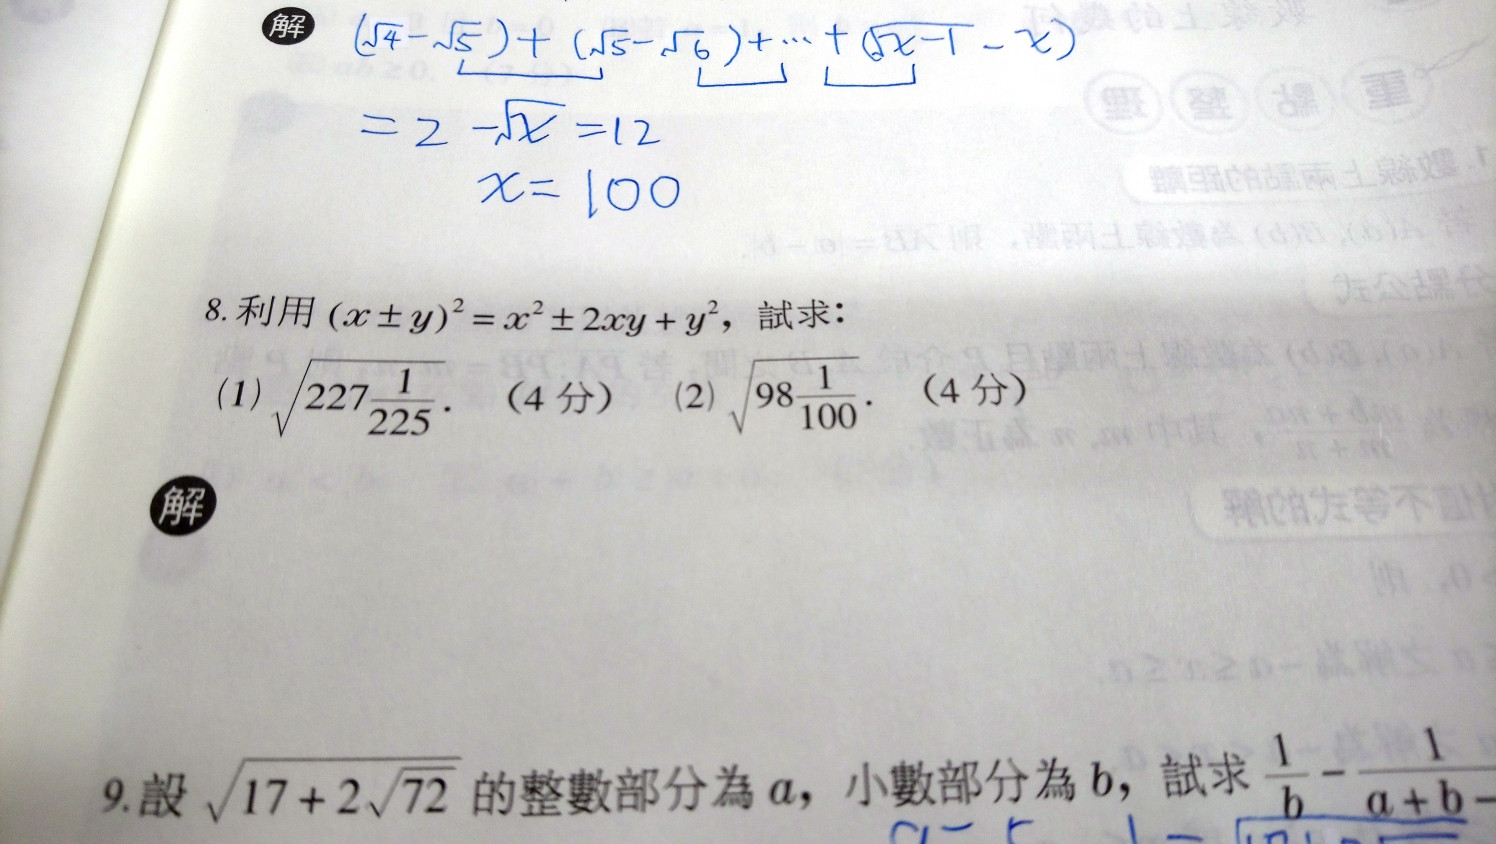 解 (√4-√5)+(√5-√6)+…+(√x-1-x)
=2-√x=12
x=100
8. 利用 (x±y)²=x²±2xy+y²，試求：
(1) √227 1/225. （4 分） (2) √98 1/100. （4 分）
解
9. 設 √17+2√72 的整數部分為 a，小數部分為 b，試求 1/b - 1/a+b-